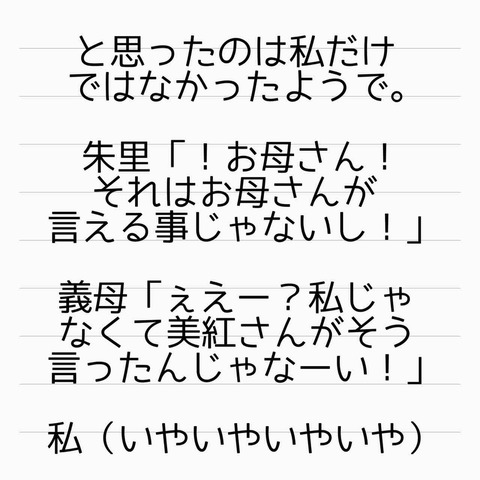 と思ったのは私だけ
ではなかったようで。
朱里「！お母さん！
それはお母さんが
言える事じゃないし！」
義母「ぇえー？私じゃ
なくて美紅さんがそう
言ったんじゃなーい！」
私（いやいやいやいや）